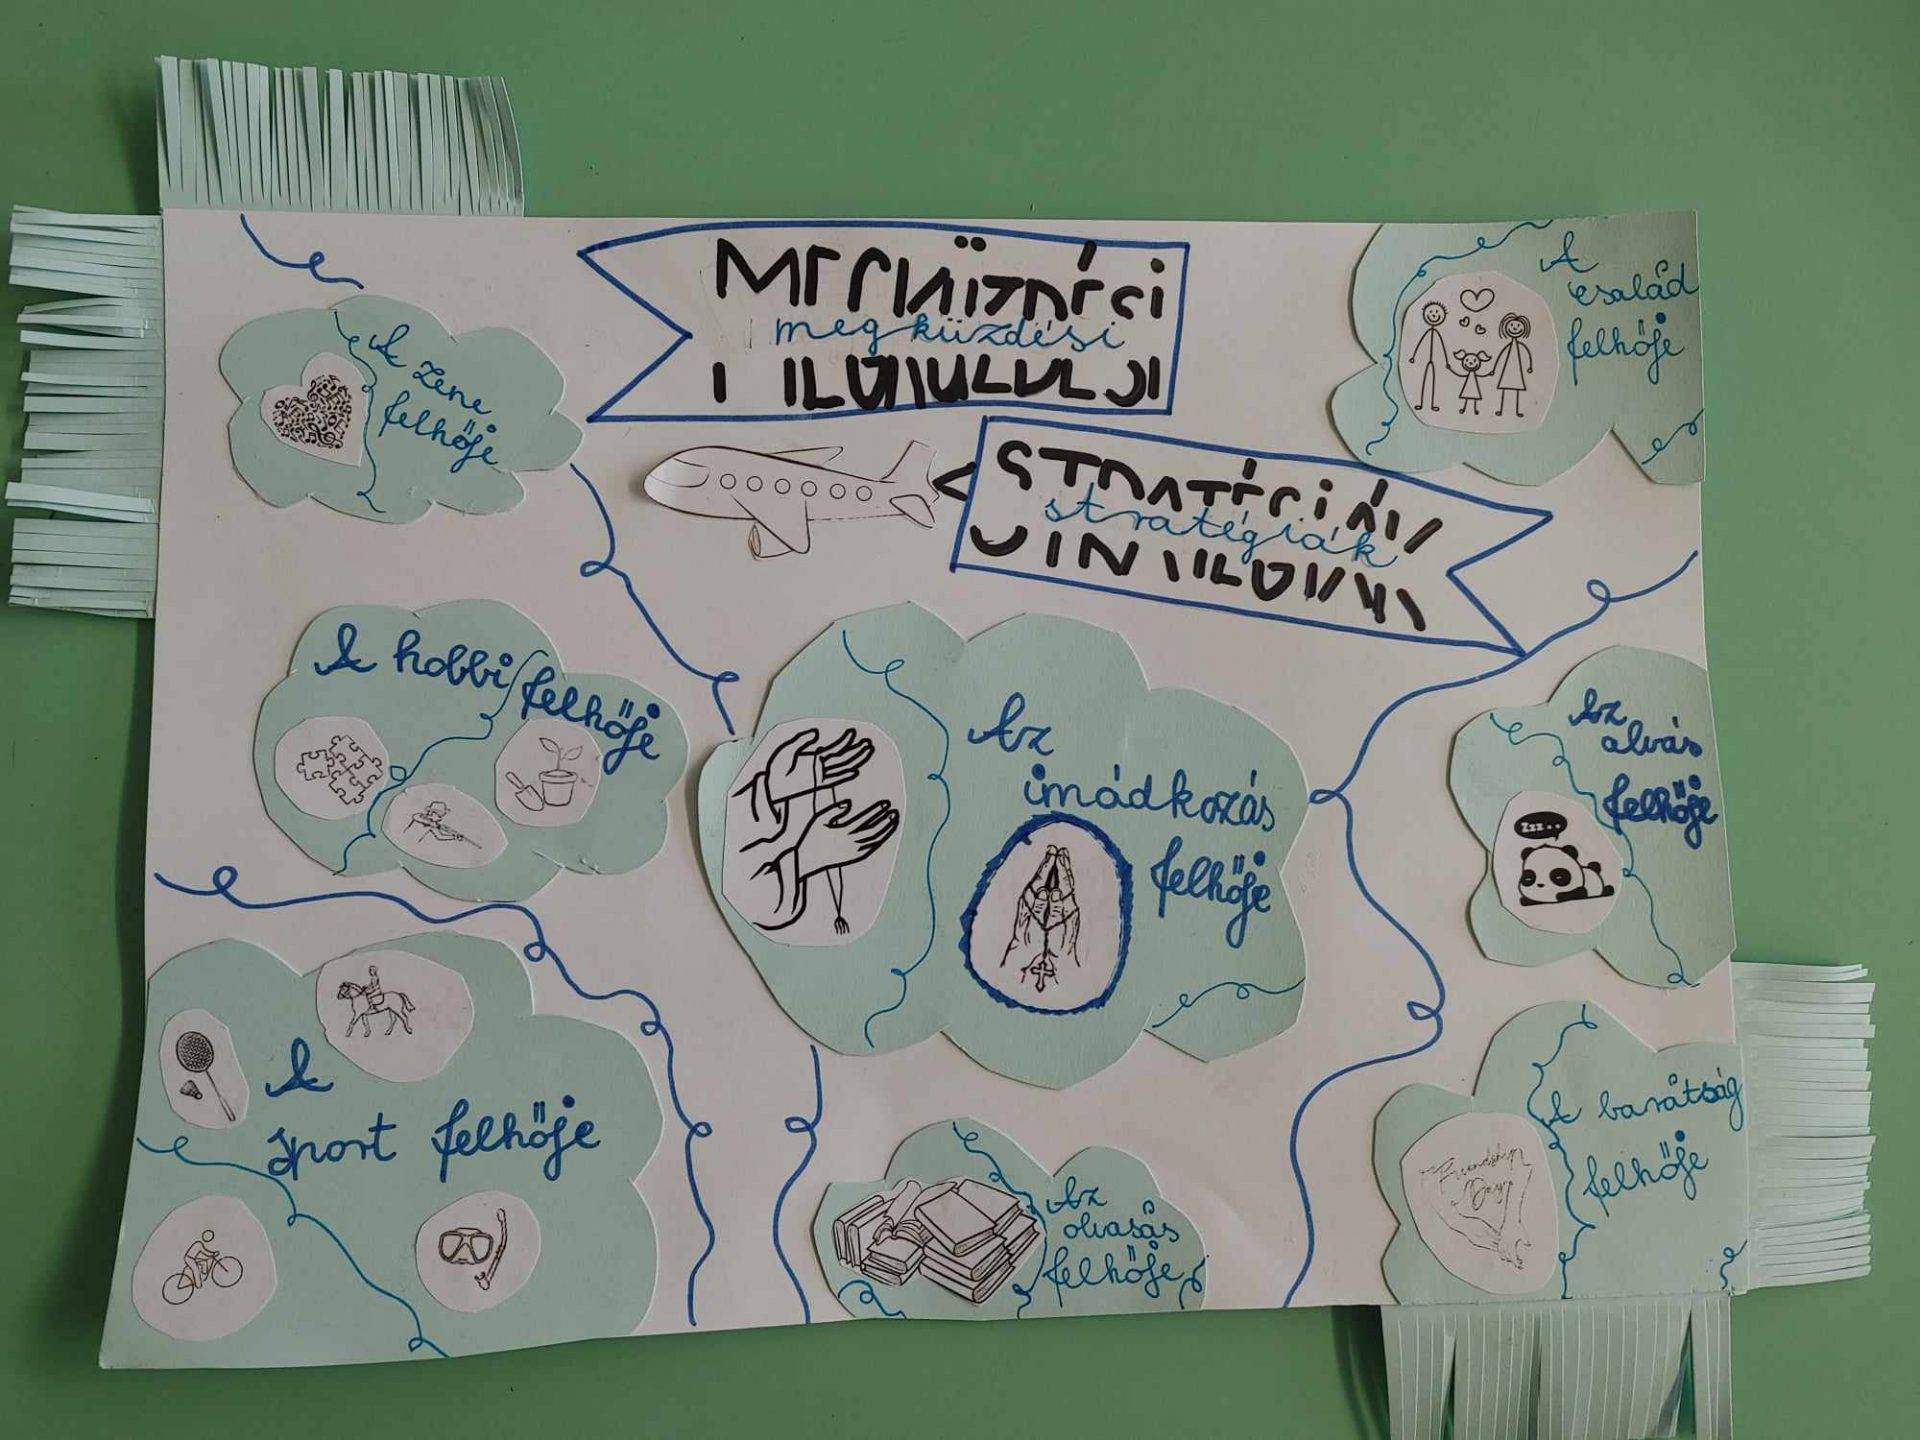 MEGKÜZDÉSI
megküzdési
STRATÉGIÁK
stratégiák
A
család
felhője
A zene
felhője
A hobbi felhője
Az
imádkozás
felhője
Az
alvás
felhője
Zzz..
A
sport felhője
Az
olvasás
felhője
A barátság
felhője